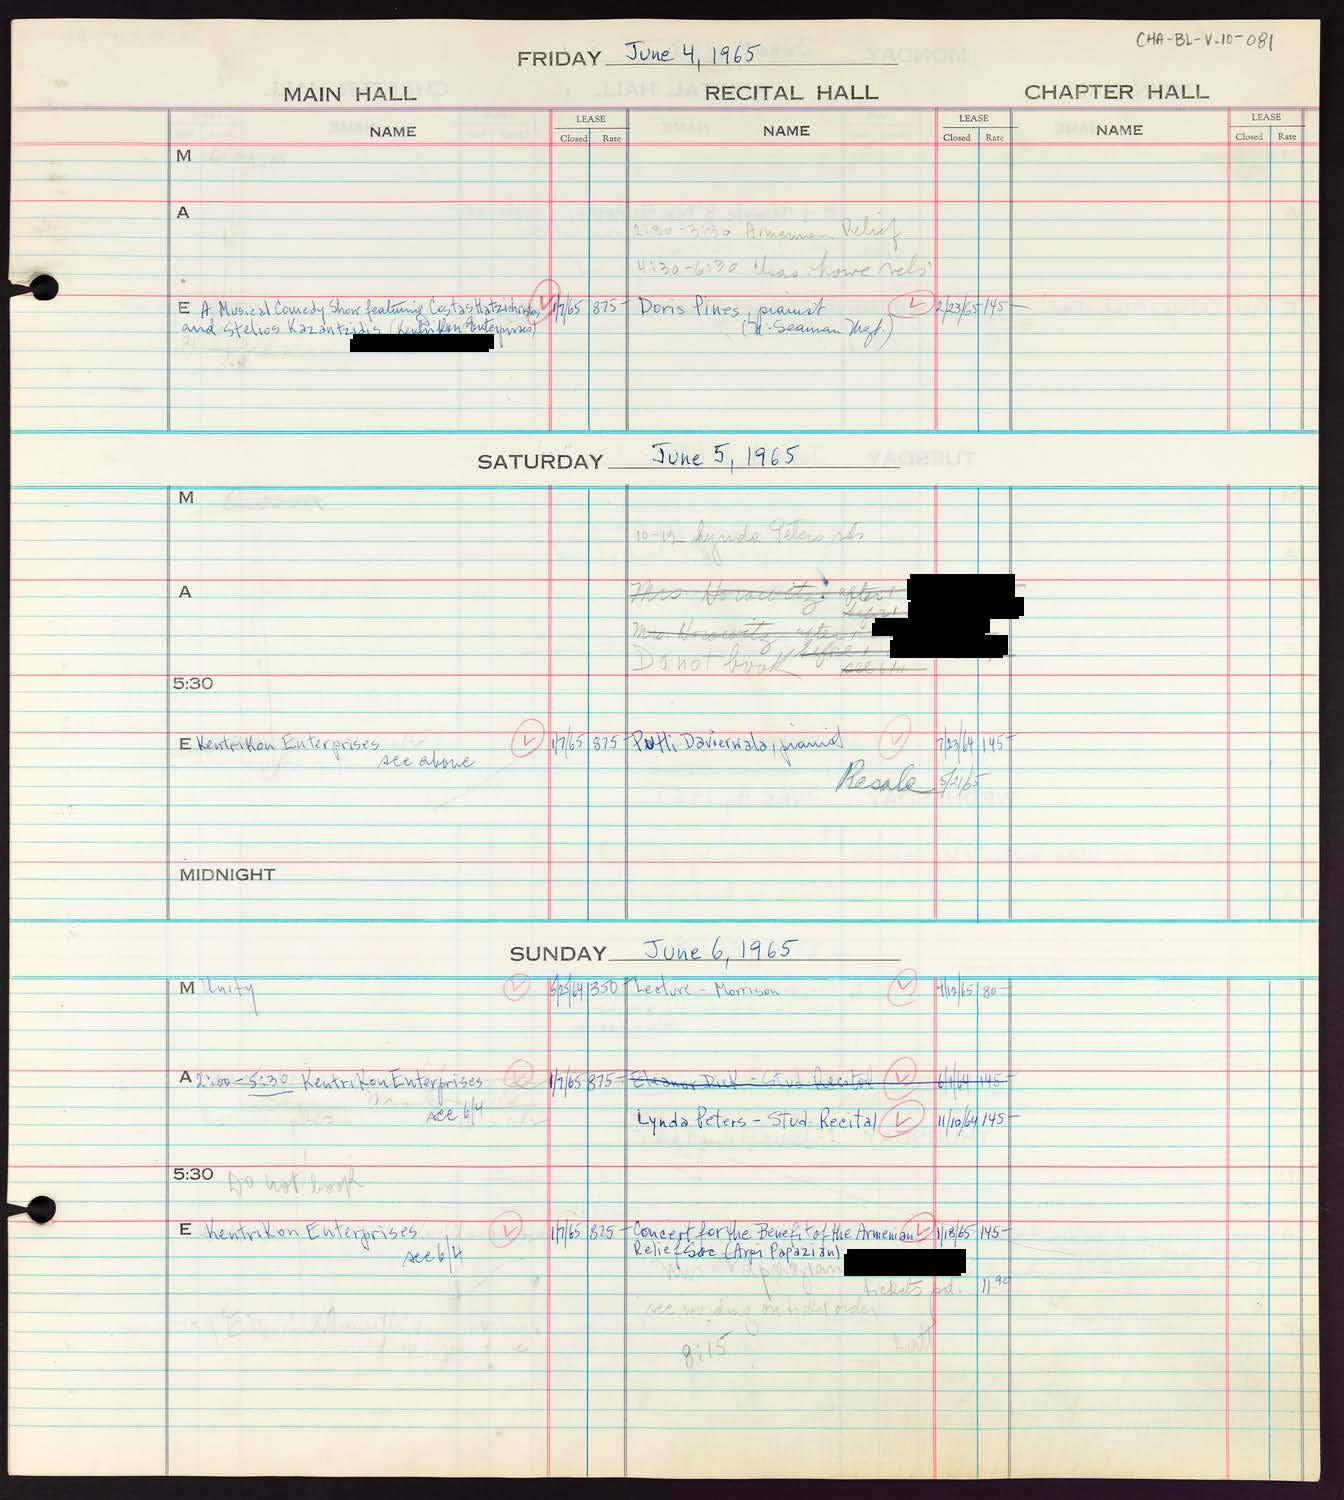 CHA-BL-V-10-081
FRIDAY June 4, 1965
MAIN HALL RECITAL HALL CHAPTER HALL
NAME LEASE Closed Rate NAME LEASE Closed Rate NAME LEASE Closed Rate
M
A
2:30-3:30 Armenian Relief
4:30-6:30
E A Musical Comedy Show featuring Costas Hatzichristos 1/7/65 875- Doris Pines, pianist 2/23/65 145-
and Stelios Kazantzidis (Kentrikon Enterprises) (N. Seaman Mgt.)
SATURDAY June 5, 1965
M
10-12 Lynda Peters rels
A
Mrs Horowitz after 1
before 1
Mrs. Horowitz after 1
before 1
Do not book see 6/11
5:30
E Kentrikon Enterprises 1/7/65 875 Putli Davierwala, pianist 7/23/64 145-
see above
Resale 5/21/65
MIDNIGHT
SUNDAY June 6, 1965
M Unity 5/25/64 350- Lecture - Morrison 1/12/65 80-
A 2:00-5:30 Kentrikon Enterprises 1/7/65 875- Eleanor Dick - Stud Recital 6/1/64 145-
see 6/4 Lynda Peters - Stud. Recital 11/10/64 145-
5:30 Do not book
E Kentrikon Enterprises 1/7/65 825- Concert for the Benefit of the Armenian 1/18/65 145-
see 6/4 Relief Soc (Arpi Papazian)
tickets pd. 11 90
see wording on ticket order
8:15